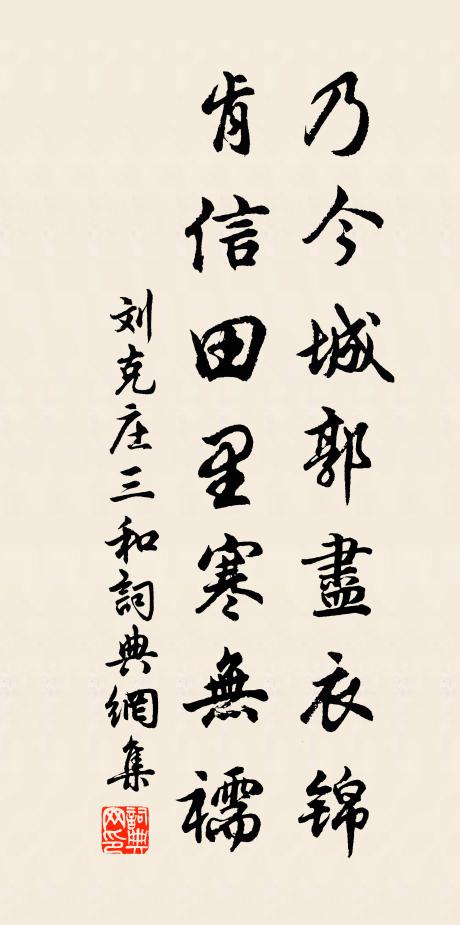 乃今城郭盡衣锦
肯信田里寒無襦
刘克庄三和詞典網集
詞典网印